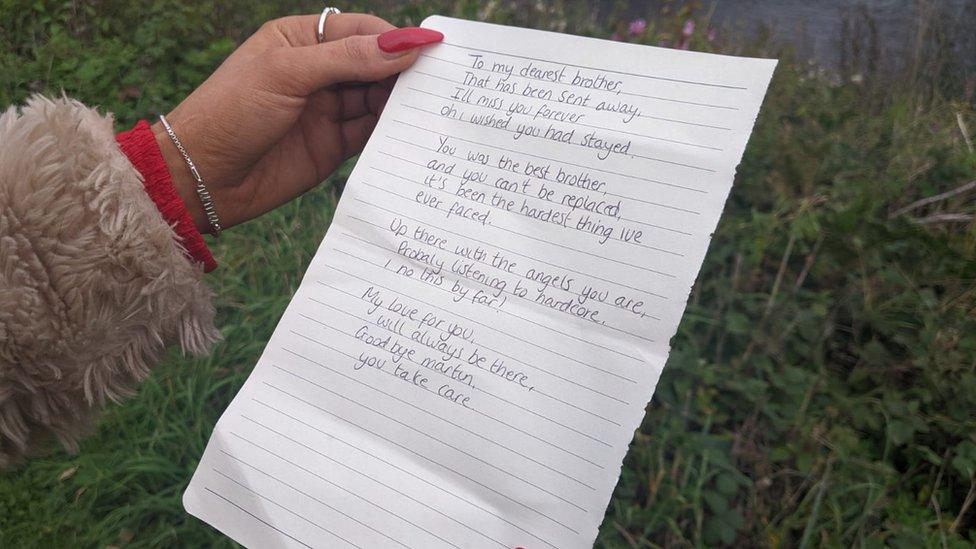 To my dearest brother,
That has been sent away,
I'll miss you forever
oh i wished you had stayed.
You was the best brother,
and you can't be replaced,
it's been the hardest thing ive
ever faced.
Up there with the angels you are,
Probaly listening to hardcore.
I no this by far!
My love for you,
will always be there,
Goodbye martin,
you take care.